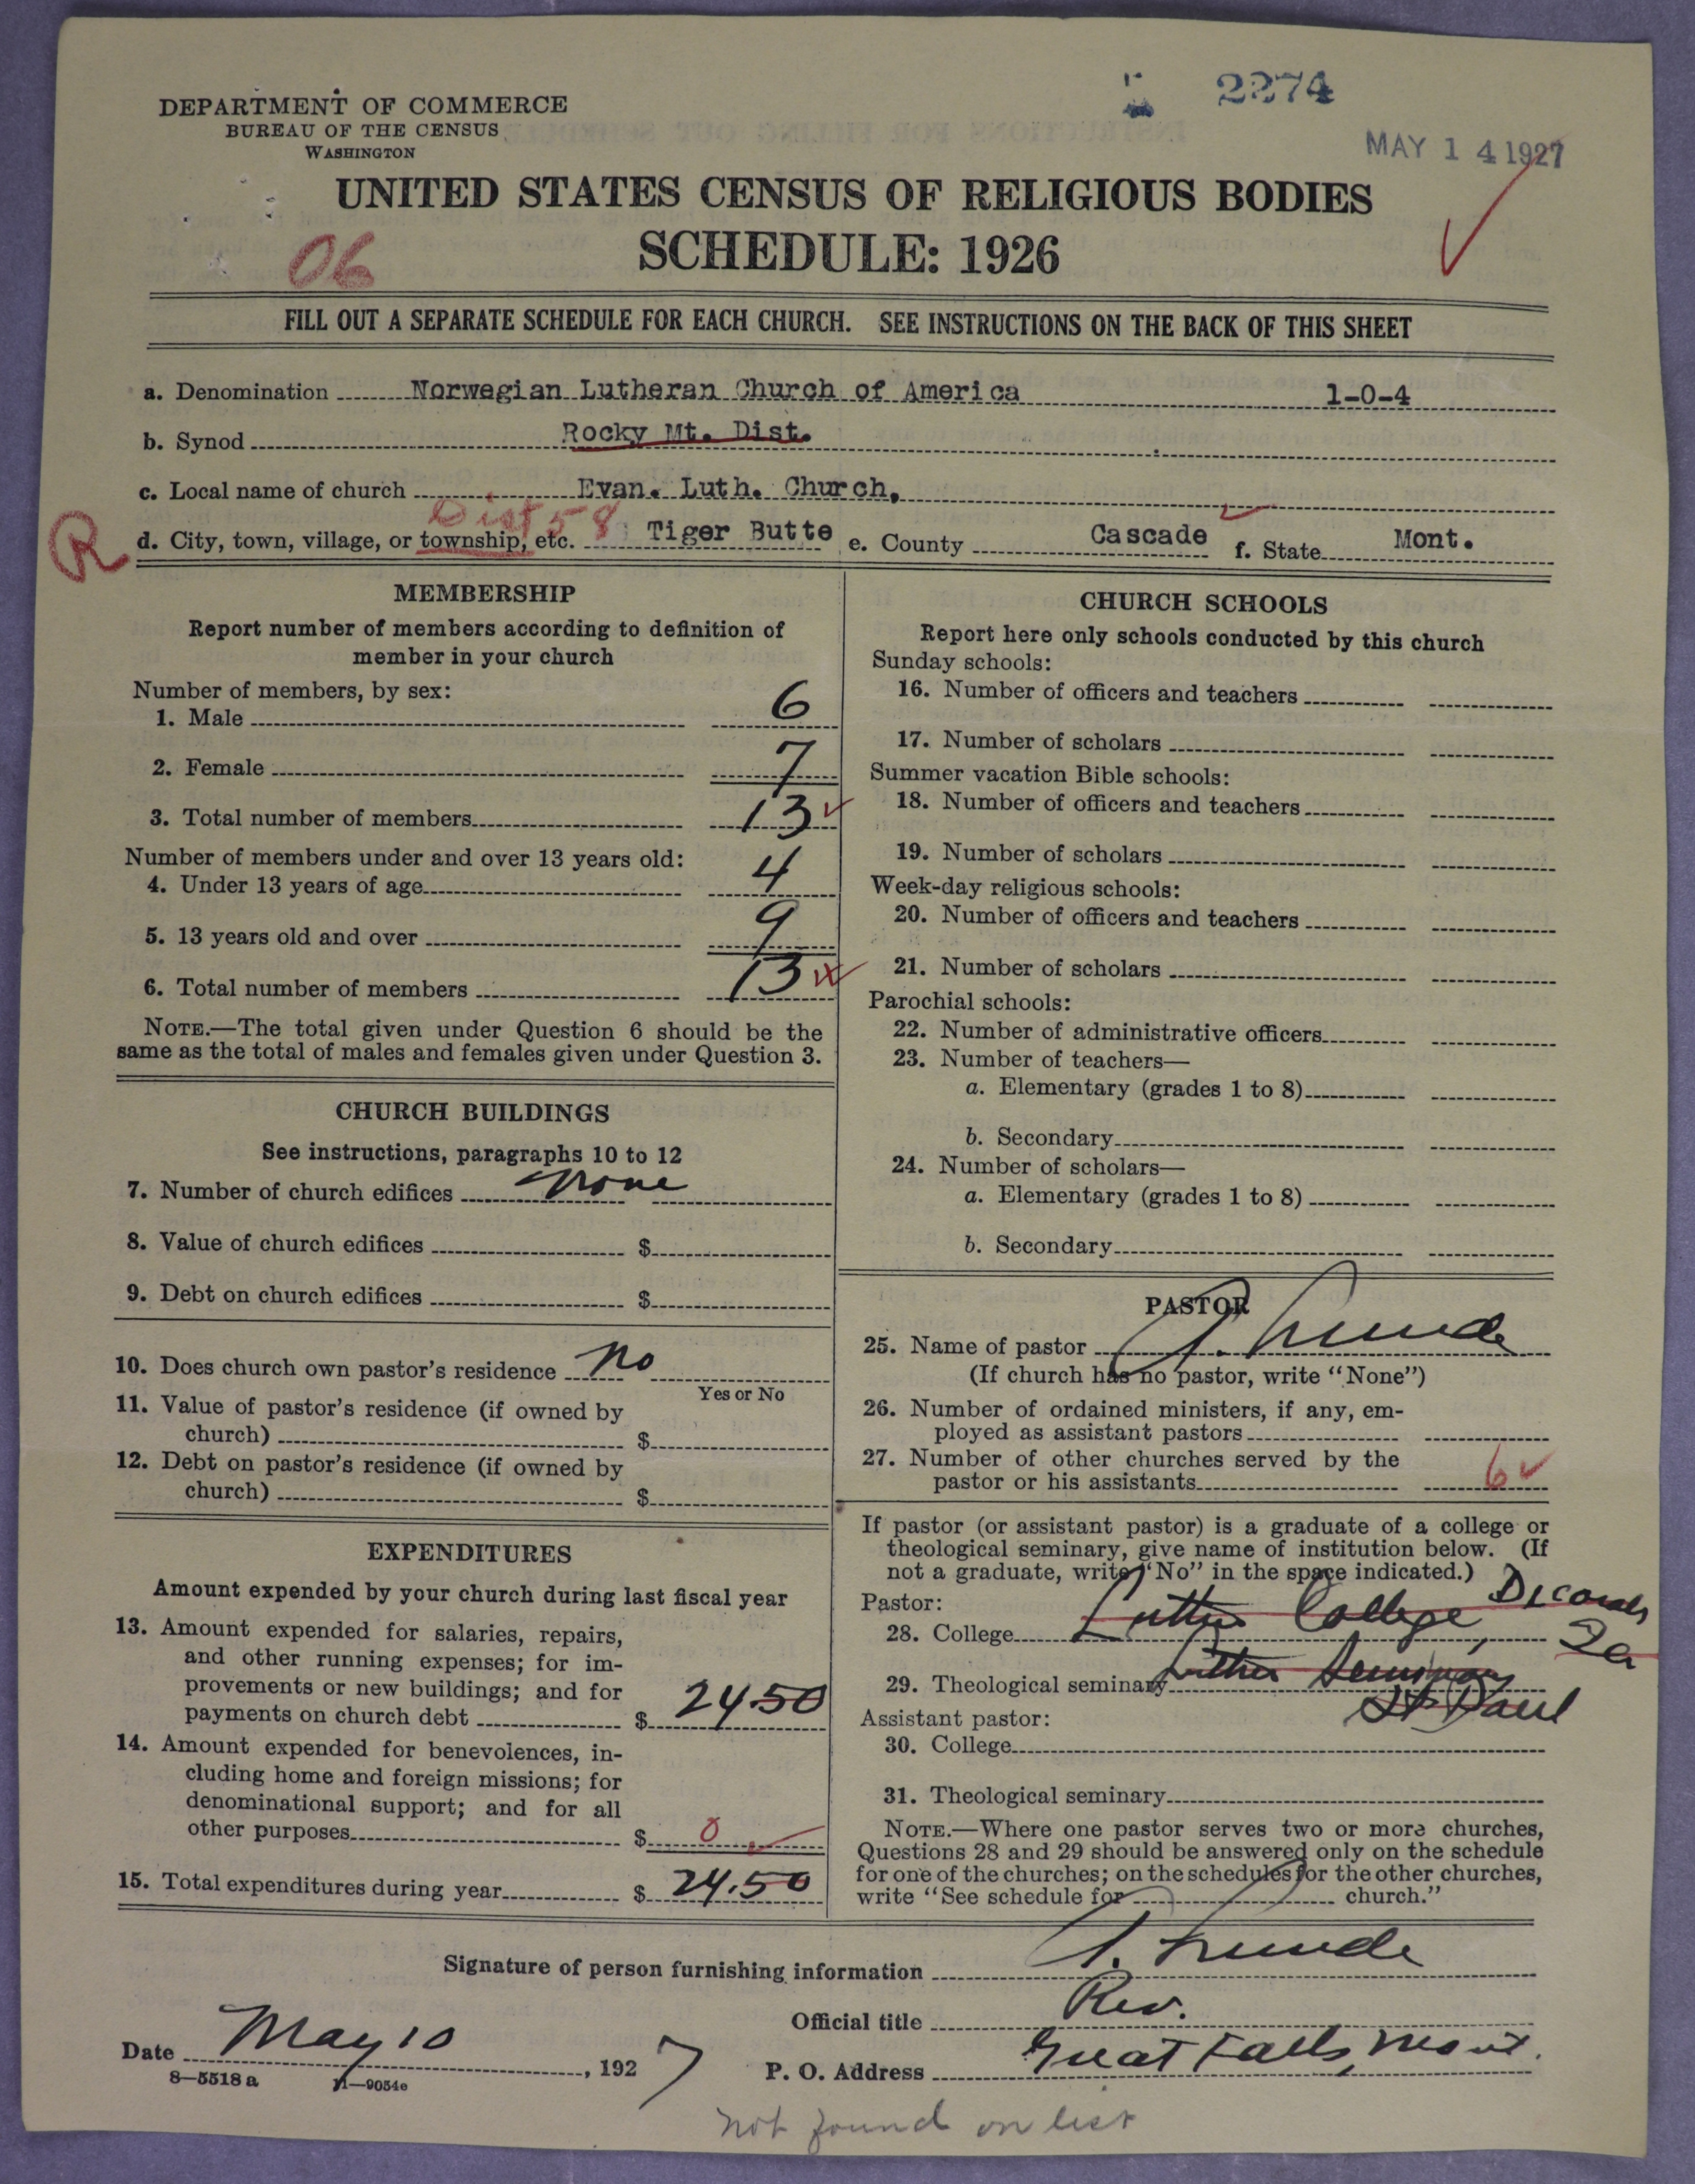 2274
MAY 14 1927
DEPARTMENT OF COMMERCE
BUREAU OF THE CENSUS
WASHINGTON
UNITED STATES CENSUS OF RELIGIOUS BODIES
SCHEDULE: 1926
06
FILL OUT A SEPARATE SCHEDULE FOR EACH CHURCH. SEE INSTRUCTIONS ON THE BACK OF THIS SHEET
a. Denomination Norwegian Lutheran Church of America 1-0-4
b. Synod Rocky Mt. Dist.
c. Local name of church Evan. Luth. Church,
Dist 58
R
d. City, town, village, or township, etc. Tiger Butte e. County Cascade f. State Mont.
MEMBERSHIP
Report number of members according to definition of
member in your church
Number of members, by sex:
1. Male 6
2. Female 7
3. Total number of members 13
Number of members under and over 13 years old:
4. Under 13 years of age 4
5. 13 years old and over 9
6. Total number of members 13
NOTE.—The total given under Question 6 should be the
same as the total of males and females given under Question 3.
CHURCH BUILDINGS
See instructions, paragraphs 10 to 12
7. Number of church edifices none
8. Value of church edifices $
9. Debt on church edifices $
10. Does church own pastor's residence no
Yes or No
11. Value of pastor's residence (if owned by
church) $
12. Debt on pastor's residence (if owned by
church) $
EXPENDITURES
Amount expended by your church during last fiscal year
13. Amount expended for salaries, repairs,
and other running expenses; for im-
provements or new buildings; and for
payments on church debt $ 24.50
14. Amount expended for benevolences, in-
cluding home and foreign missions; for
denominational support; and for all
other purposes $ 0
15. Total expenditures during year $ 24.50
CHURCH SCHOOLS
Report here only schools conducted by this church
Sunday schools:
16. Number of officers and teachers
17. Number of scholars
Summer vacation Bible schools:
18. Number of officers and teachers
19. Number of scholars
Week-day religious schools:
20. Number of officers and teachers
21. Number of scholars
Parochial schools:
22. Number of administrative officers
23. Number of teachers—
a. Elementary (grades 1 to 8)
b. Secondary
24. Number of scholars—
a. Elementary (grades 1 to 8)
b. Secondary
PASTOR
25. Name of pastor
(If church has no pastor, write "None")
26. Number of ordained ministers, if any, em-
ployed as assistant pastors
27. Number of other churches served by the
pastor or his assistants 6
If pastor (or assistant pastor) is a graduate of a college or
theological seminary, give name of institution below. (If
not a graduate, write "No" in the space indicated.)
Pastor:
28. College Luther College, Decorah, Ia
29. Theological seminary Luther Seminary
St Paul
Assistant pastor:
30. College
31. Theological seminary
NOTE.—Where one pastor serves two or more churches,
Questions 28 and 29 should be answered only on the schedule
for one of the churches; on the schedules for the other churches,
write "See schedule for church."
Signature of person furnishing information
Official title Rev.
Date May 10, 1927
P. O. Address Great Falls, Mont.
8—5518 a 11—9054e
not found on list